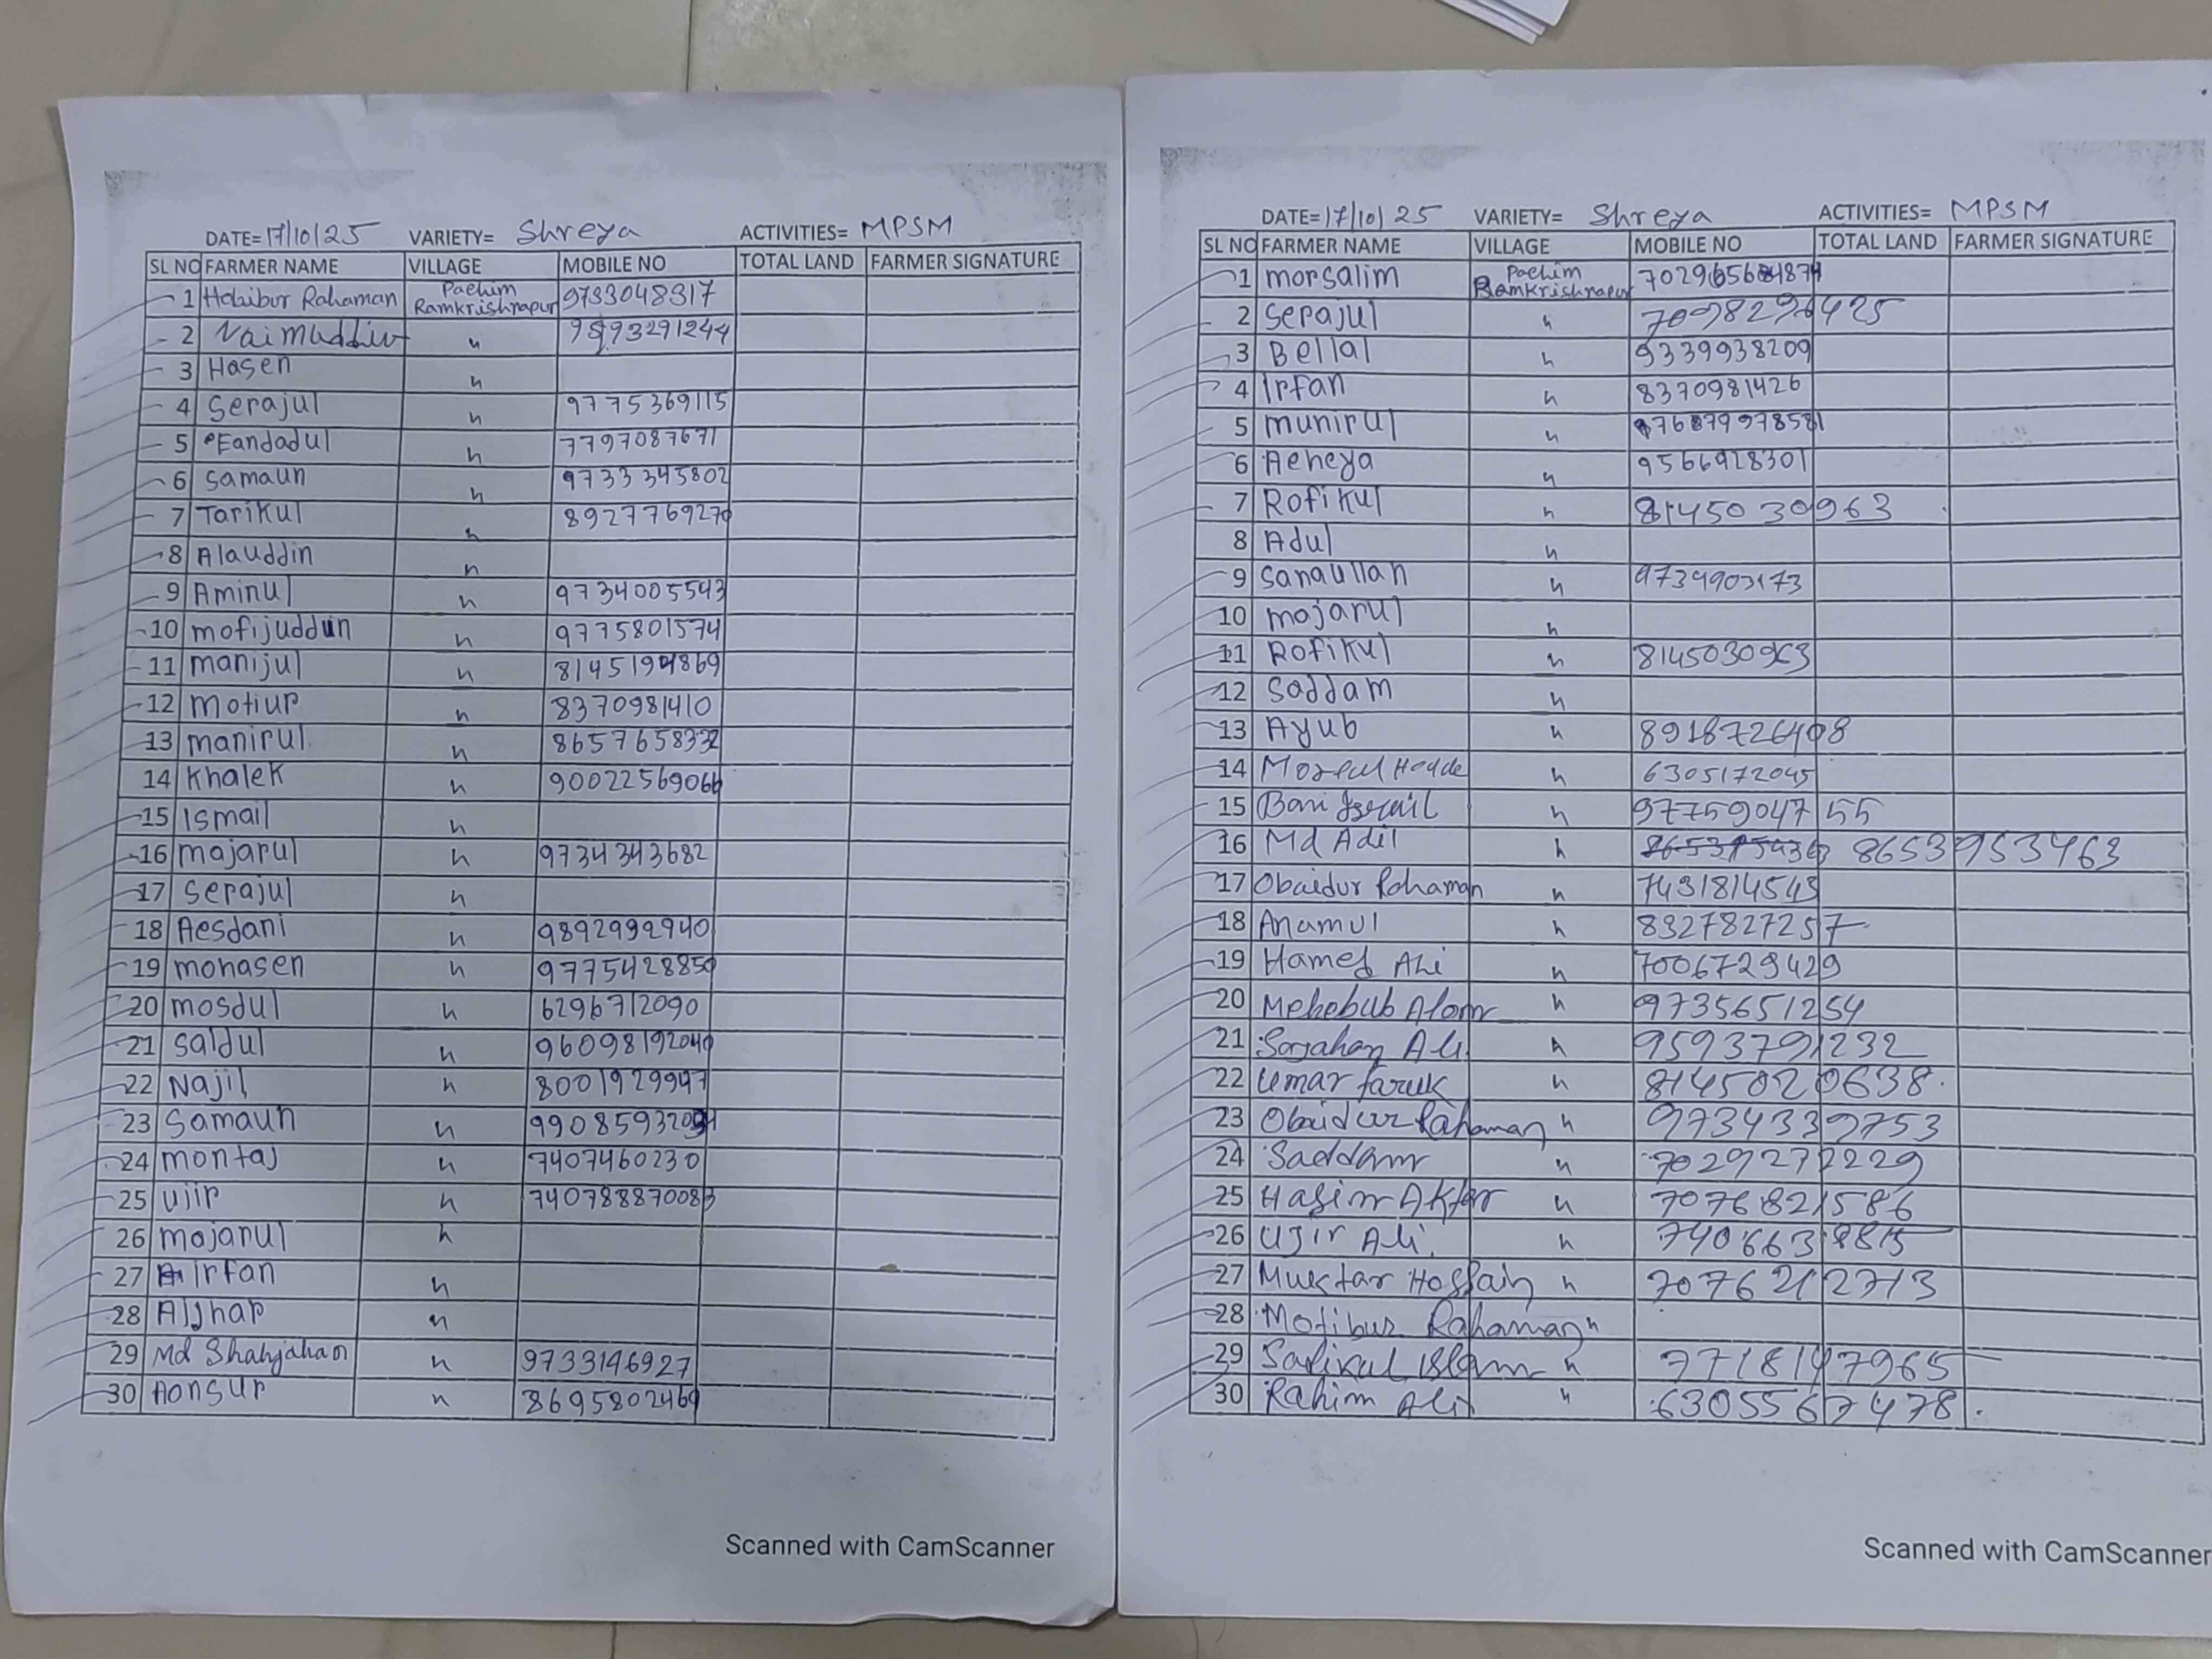 DATE= 17/10/25 VARIETY= Shreya ACTIVITIES= MPSM
SL NO FARMER NAME VILLAGE MOBILE NO TOTAL LAND FARMER SIGNATURE
1 Habibur Rahaman Pachim Ramkrishnapur 9733048317
2 Naimuddin " 9593291244
3 Hasen "
4 Serajul " 9775369115
5 Eandadul " 7797087671
6 Samaun " 9733345802
7 Tarikul " 8927769270
8 Alauddin "
9 Aminul " 9734005543
10 mofijuddin " 9775801574
11 manijul " 8145194869
12 motiur " 8370981410
13 manirul " 8657658332
14 Khalek " 90022569066
15 Ismail "
16 majarul " 9734343682
17 Serajul "
18 Aesdani " 9892992940
19 mohasen " 9775428850
20 mosdul " 6296712090
21 saidul " 96098192040
22 Najil " 8001929947
23 Samaun "
24 montaj " 7407460230
25 ujir " 740788870083
26 mojarul "
27 Irfan "
28 "
29 Md Shahjahan " 9733146927
30 Aonsur " 8695802469
Scanned with CamScanner
DATE= 17/10/25 VARIETY= Shreya ACTIVITIES= MPSM
SL NO FARMER NAME VILLAGE MOBILE NO TOTAL LAND FARMER SIGNATURE
1 morsalim Pachim Ramkrishnapur
2 Serajul " 7098296425
3 Bellal " 9339938209
4 Irfan " 8370981426
5 munirul "
6 Aeheya " 9566928301
7 Rofikul " 8145030963
8 Adul "
9 Sanaullah " 9734903173
10 mojarul "
11 Rofikul " 8145030963
12 Saddam "
13 Ayub " 8918726408
14 " 6305172045
15 Bani Israil " 9775904755
16 Md Adil " 8653953463
17 Obaidur Rahaman " 7431814545
18 Anamul " 8327827257
19 Hamed Ali " 7006729429
20 Mehebub Alom " 9735651254
21 Sajahan Ali " 9593791232
22 Umar faruk " 8145020638
23 Obaidur Rahaman " 9734339753
24 Saddam " 7029272229
25 Hasim Aktar " 7076821586
26 Ujir Ali "
27 Muktar Hossain " 7076212713
28 Motibur Rahaman "
29 Safikul Islam " 7718147965
30 Rahim Ali " 6305567478
Scanned with CamScanner